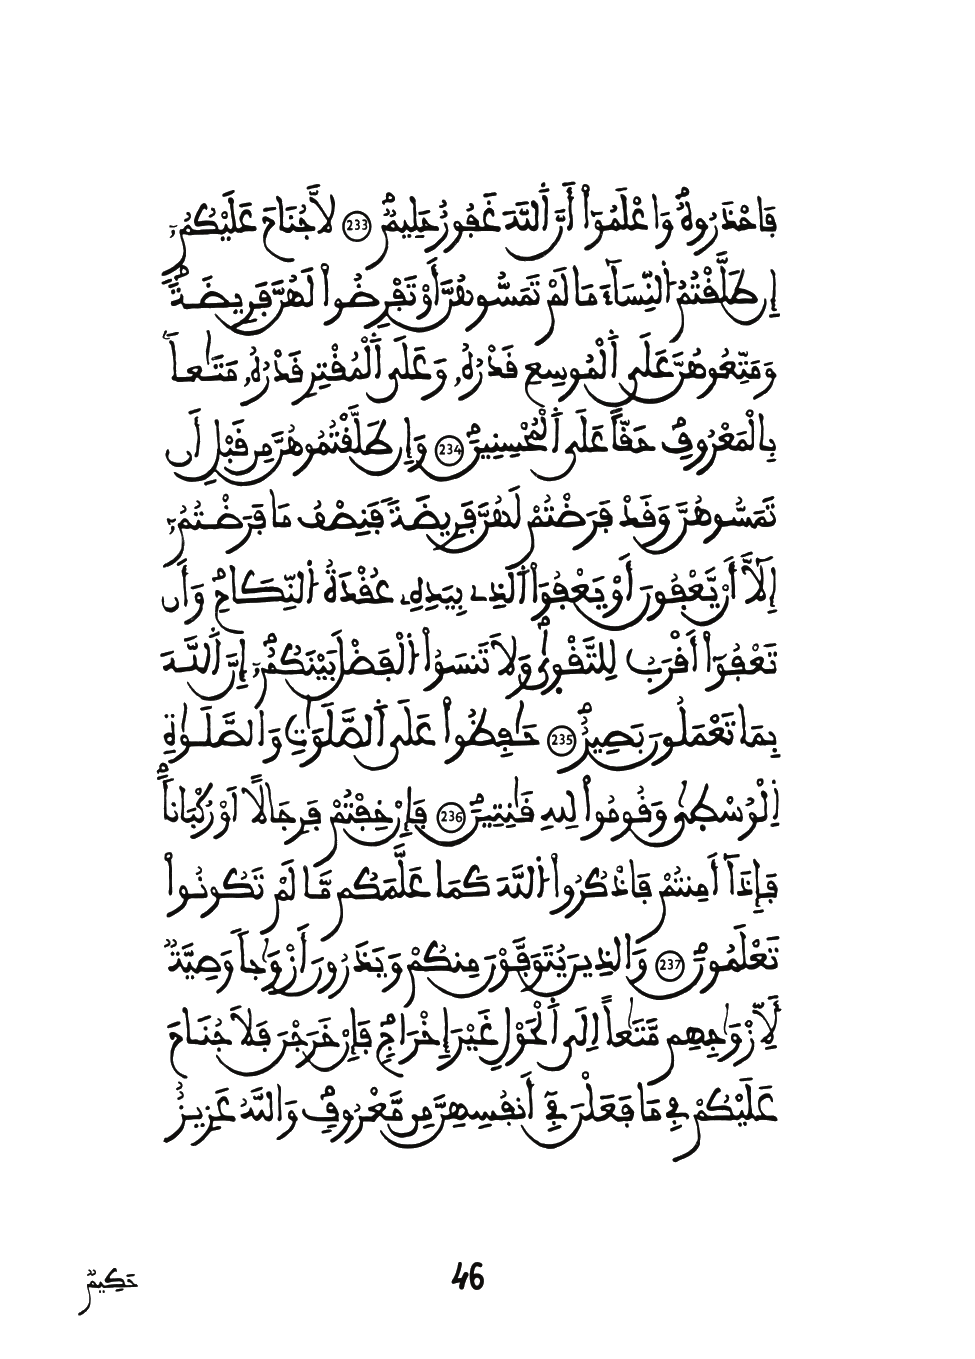 فَاحْذَرُوهُ وَاعْلَمُوٓاْ أَنَّ اَللَّهَ غَفُورٌ حَلِيمٞ 233 لَّا جُنَاحَ عَلَيْكُمُۥٓ
إِن طَلَّقْتُمُ اُلنِّسَآءَ مَا لَمْ تَمَسُّوهُنَّ أَوْ تَفْرِضُواْ لَهُنَّ فَرِيضَةٗ
وَمَتِّعُوهُنَّ عَلَى اَلْمُوسِعِ قَدْرُهُۥ وَعَلَى اَلْمُقْتِرِ قَدْرُهُۥ مَتَٰعاَۢ
بِالْمَعْرُوفِ حَقّاً عَلَى اَلْمُحْسِنِينَ 234 وَإِن طَلَّقْتُمُوهُنَّ مِن قَبْلِ أَن
تَمَسُّوهُنَّ وَقَدْ فَرَضْتُمْ لَهُنَّ فَرِيضَةٗ فَنِصْفُ مَا فَرَضْتُمُۥٓ
إِلَّآ أَنْ يَّعْفُونَ أَوْ يَعْفُوَاْ اَلَّذِے بِيَدِهِۦ عُقْدَةُ اُلنِّكَاحِ وَأَن
تَعْفُوٓاْ أَقْرَبُ لِلتَّقْو۪يٰ وَلَا تَنسَوُاْ اُلْفَضْلَ بَيْنَكُمُۥٓ إِنَّ اَللَّهَ
بِمَا تَعْمَلُونَ بَصِيرٌ 235 حَٰفِظُواْ عَلَى اَلصَّلَوَٰتِ وَالصَّلَوٰةِ
اِلْوُسْط۪يٰ وَقُومُواْ لِلهِ قَٰنِتِينَ 236 فَإِنْ خِفْتُمْ فَرِجَالاً اَوْ رُكْبَاناٗ
فَإِذَآ أَمِنتُمْ فَاذْكُرُواْ اُللَّهَ كَمَا عَلَّمَكُم مَّا لَمْ تَكُونُواْ
تَعْلَمُونَ 237 وَالذِينَ يُتَوَفَّوْنَ مِنكُمْ وَيَذَرُونَ أَزْوَٰجاٗ وَصِيَّةٞ
لِّأَزْوَٰجِهِم مَّتَٰعاً اِلَى اَلْحَوْلِ غَيْرَ إِخْرَاجٖ فَإِنْ خَرَجْنَ فَلَا جُنَاحَ
عَلَيْكُمْ فِے مَا فَعَلْنَ فِےٓ أَنفُسِهِنَّ مِن مَّعْرُوفٖ وَاللَّهُ عَزِيزٌ
حَكِيمٞ
46